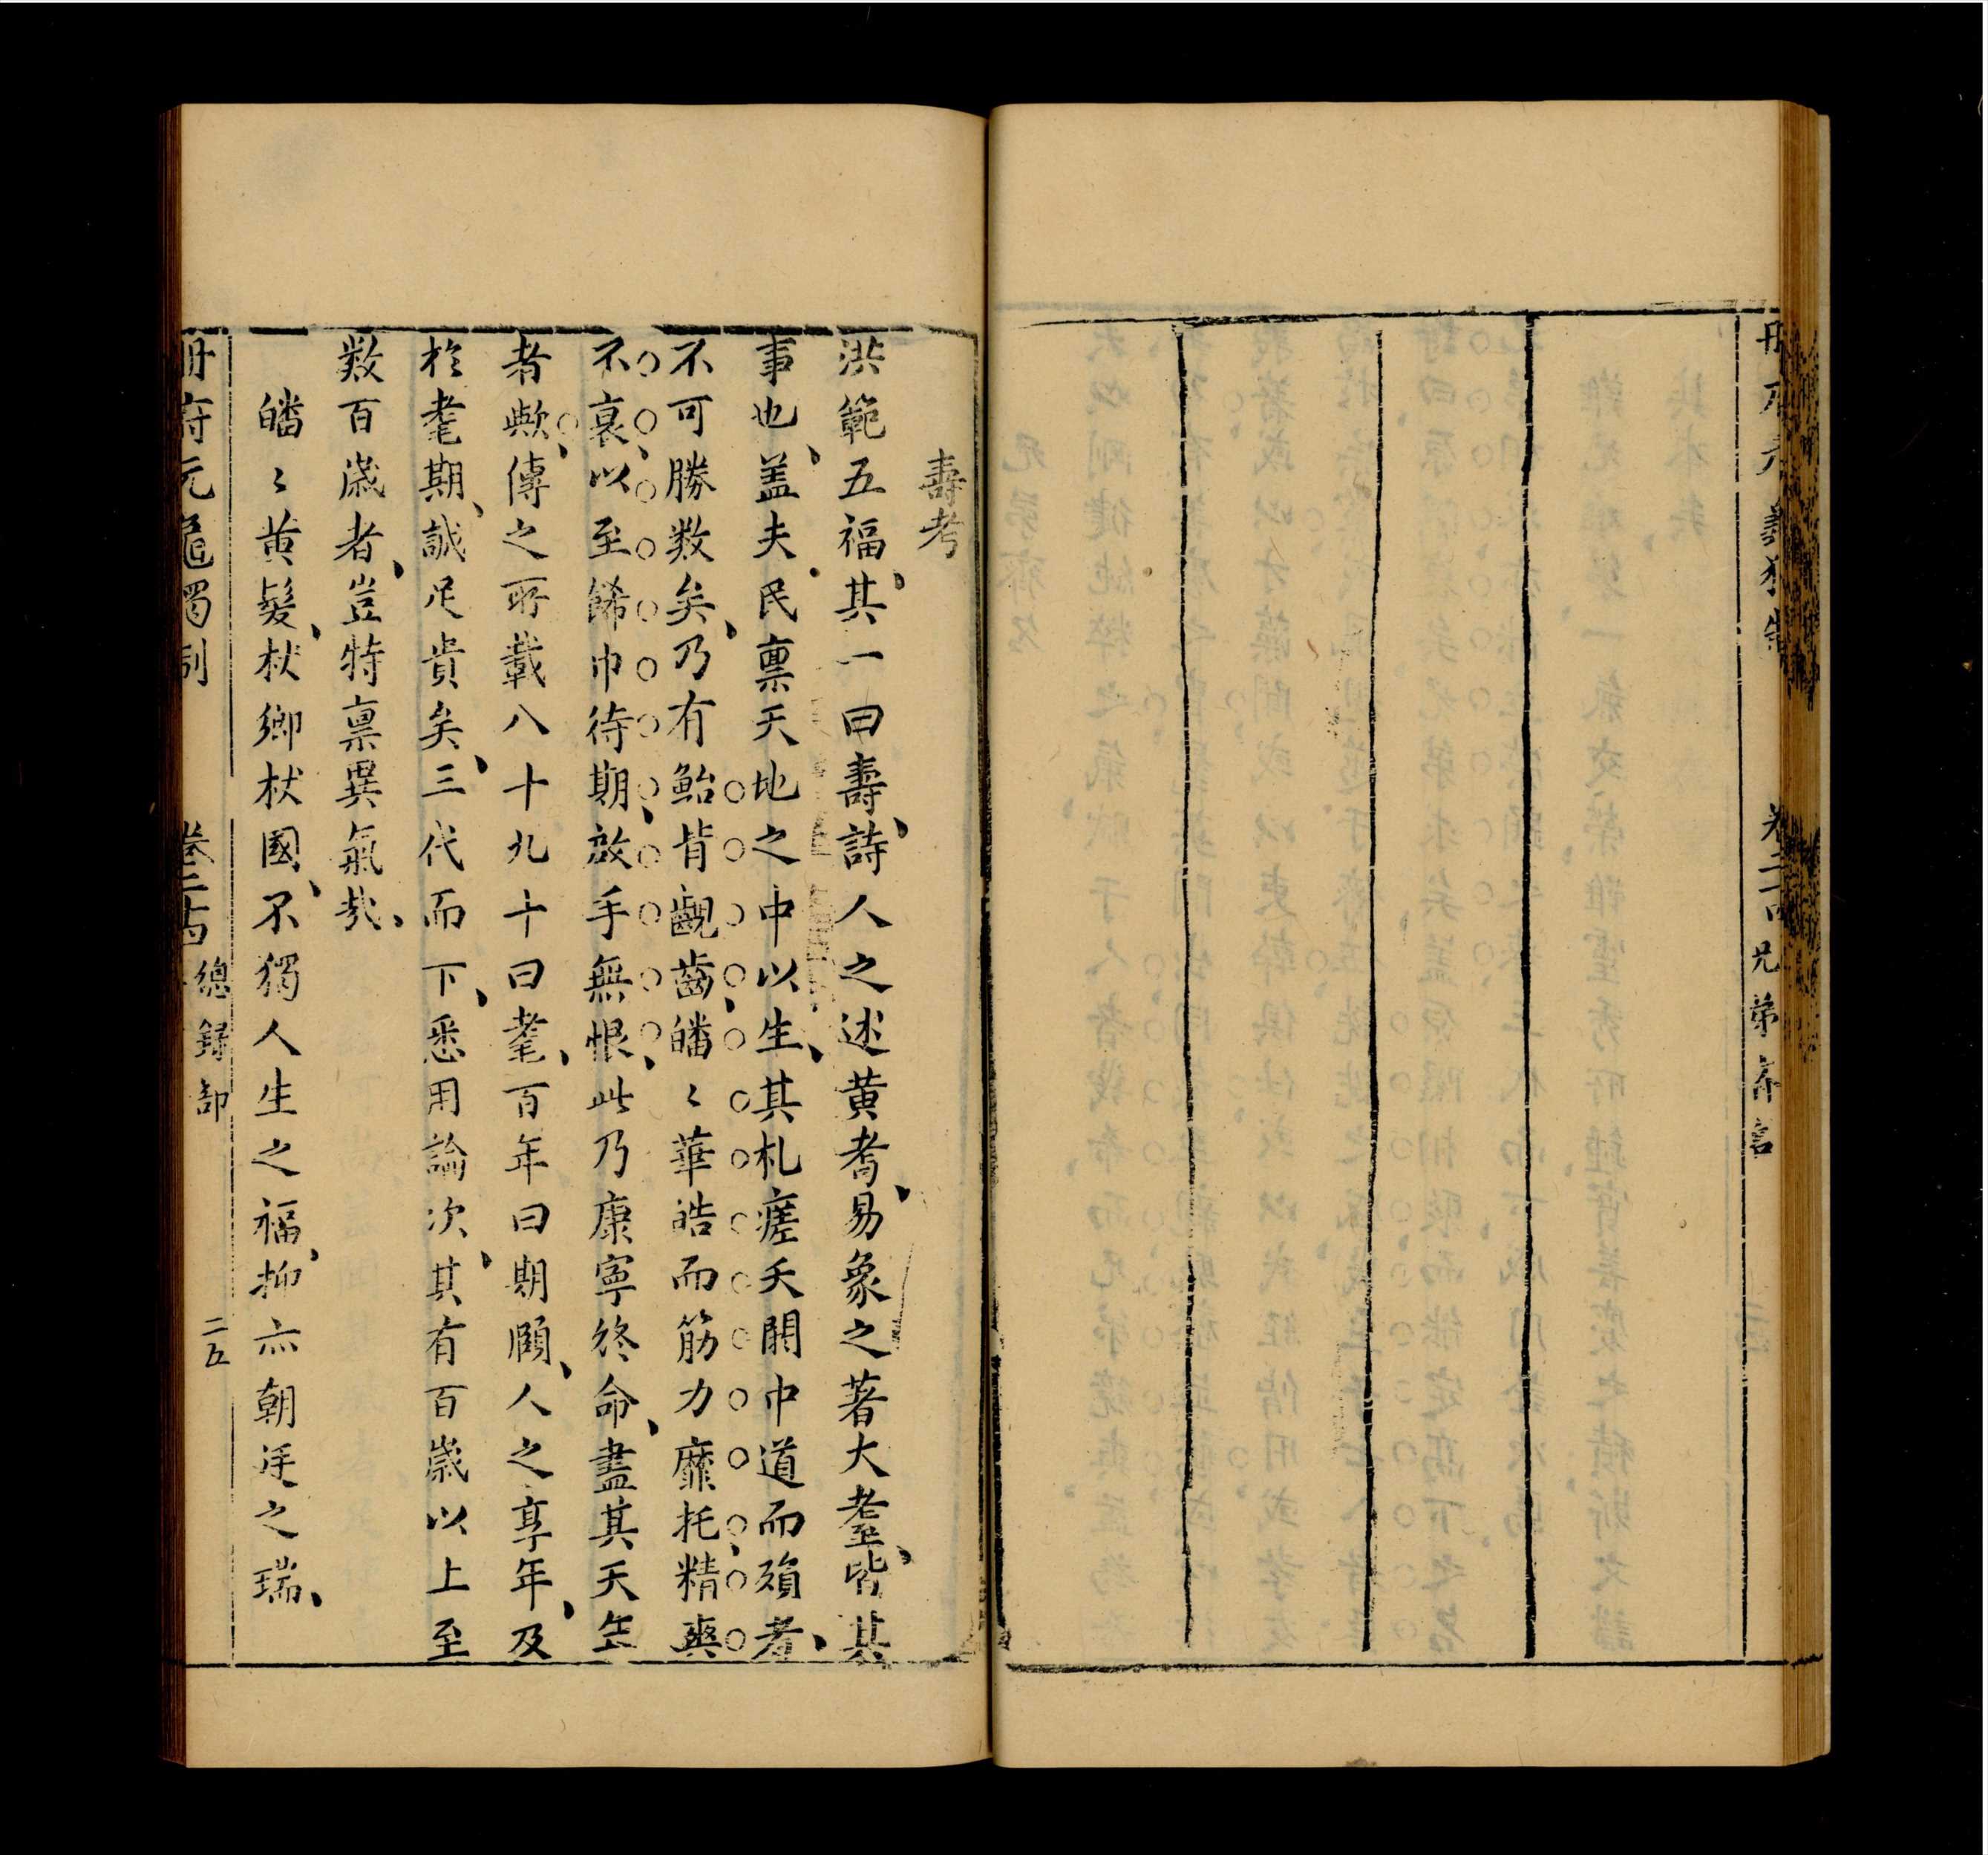 兄弟齊名
壽考
洪範五福、其一曰壽、詩人之述黃耇、易象之著大耋、皆其
事也、盖夫民禀天地之中以生、其札瘥夭閼中道而殞者、
不可勝数矣、乃有鮐背齯齒、皤〻華皓而筋力靡托、精爽
不衰、以至餙巾待期、放手無恨、此乃康寧終命、盡其天年
者歟、傳之所載八十九十曰耄、百年曰期頤、人之享年、及
於耄期、誠足貴矣、三代而下、悉用論次、其有百歲以上至
数百歲者、豈特禀異氣哉、
皤〻黃髮、杖鄉杖國、不獨人生之福、抑亦朝廷之瑞、
冊府元龜獨制
卷二十四
總録部
二五